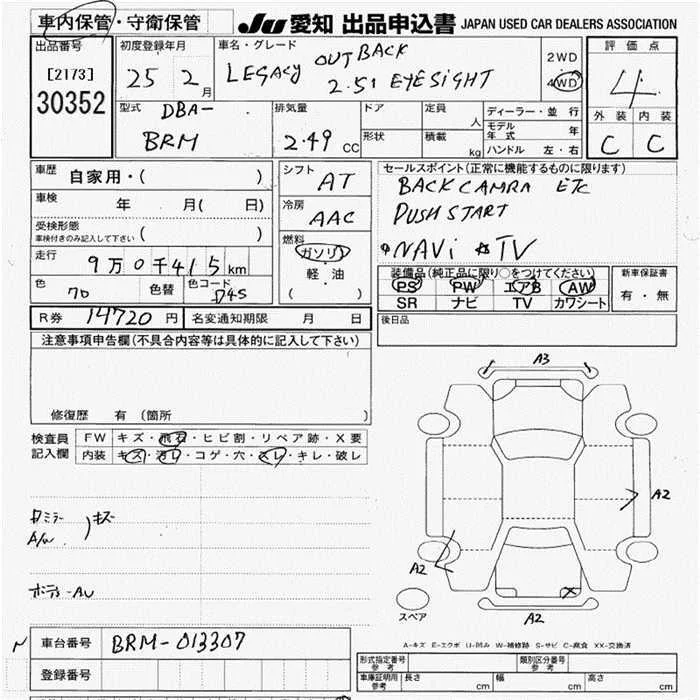 車内保管・守衛保管 JU 愛知 出品申込書 JAPAN USED CAR DEALERS ASSOCIATION
出品番号 初度登録年月 車名・グレード 評価点
[2173] 25 2月 LEGACY OUTBACK 2WD
30352 2.5i EYESIGHT 4WD 4
型式 DBA- 排気量 ドア 定員 人 ディーラー・並行 外装 内装
BRM 2.49 CC 形状 積載 kg モデル年式 年 C C
ハンドル 左・右
車歴 自家用・( ) シフト AT セールスポイント(正常に機能するものに限ります)
車検 年 月( 日) 冷房 AAC BACK CAMRA ETC
受検形態 車検付きのみ記入して下さい ( ) PUSH START
燃料 ガソリン NAVi TV
走行 9万0千415km 軽・油 装備品(純正品に限り○をつけてください) 新車保証書
( ) PS PW エアB AW 有・無
色 70 色替 色コード D4S SR ナビ TV カワシート
R券 14720円 名変通知期限 月 日 後日品
注意事項申告欄(不具合内容等は具体的に記入して下さい)
修復歴 有 (箇所 )
検査員 FW キズ・飛石・ヒビ割・リペア跡・X要
記入欄 内装 キズ・汚レ・コゲ・穴・スレ・キレ・破レ
A3
A2
ミラー ) キズ
A/w
A2
ボディ-AU
スペア A2
A-キズ E-エクボ U-凹み W-補修跡 S-サビ C-腐食 XX-交換済
車台番号 BRM-013307
登録番号
形式指定番号 参考 類別区分番号 参考
車庫証明用 参考 長さ cm 幅 cm 高さ cm